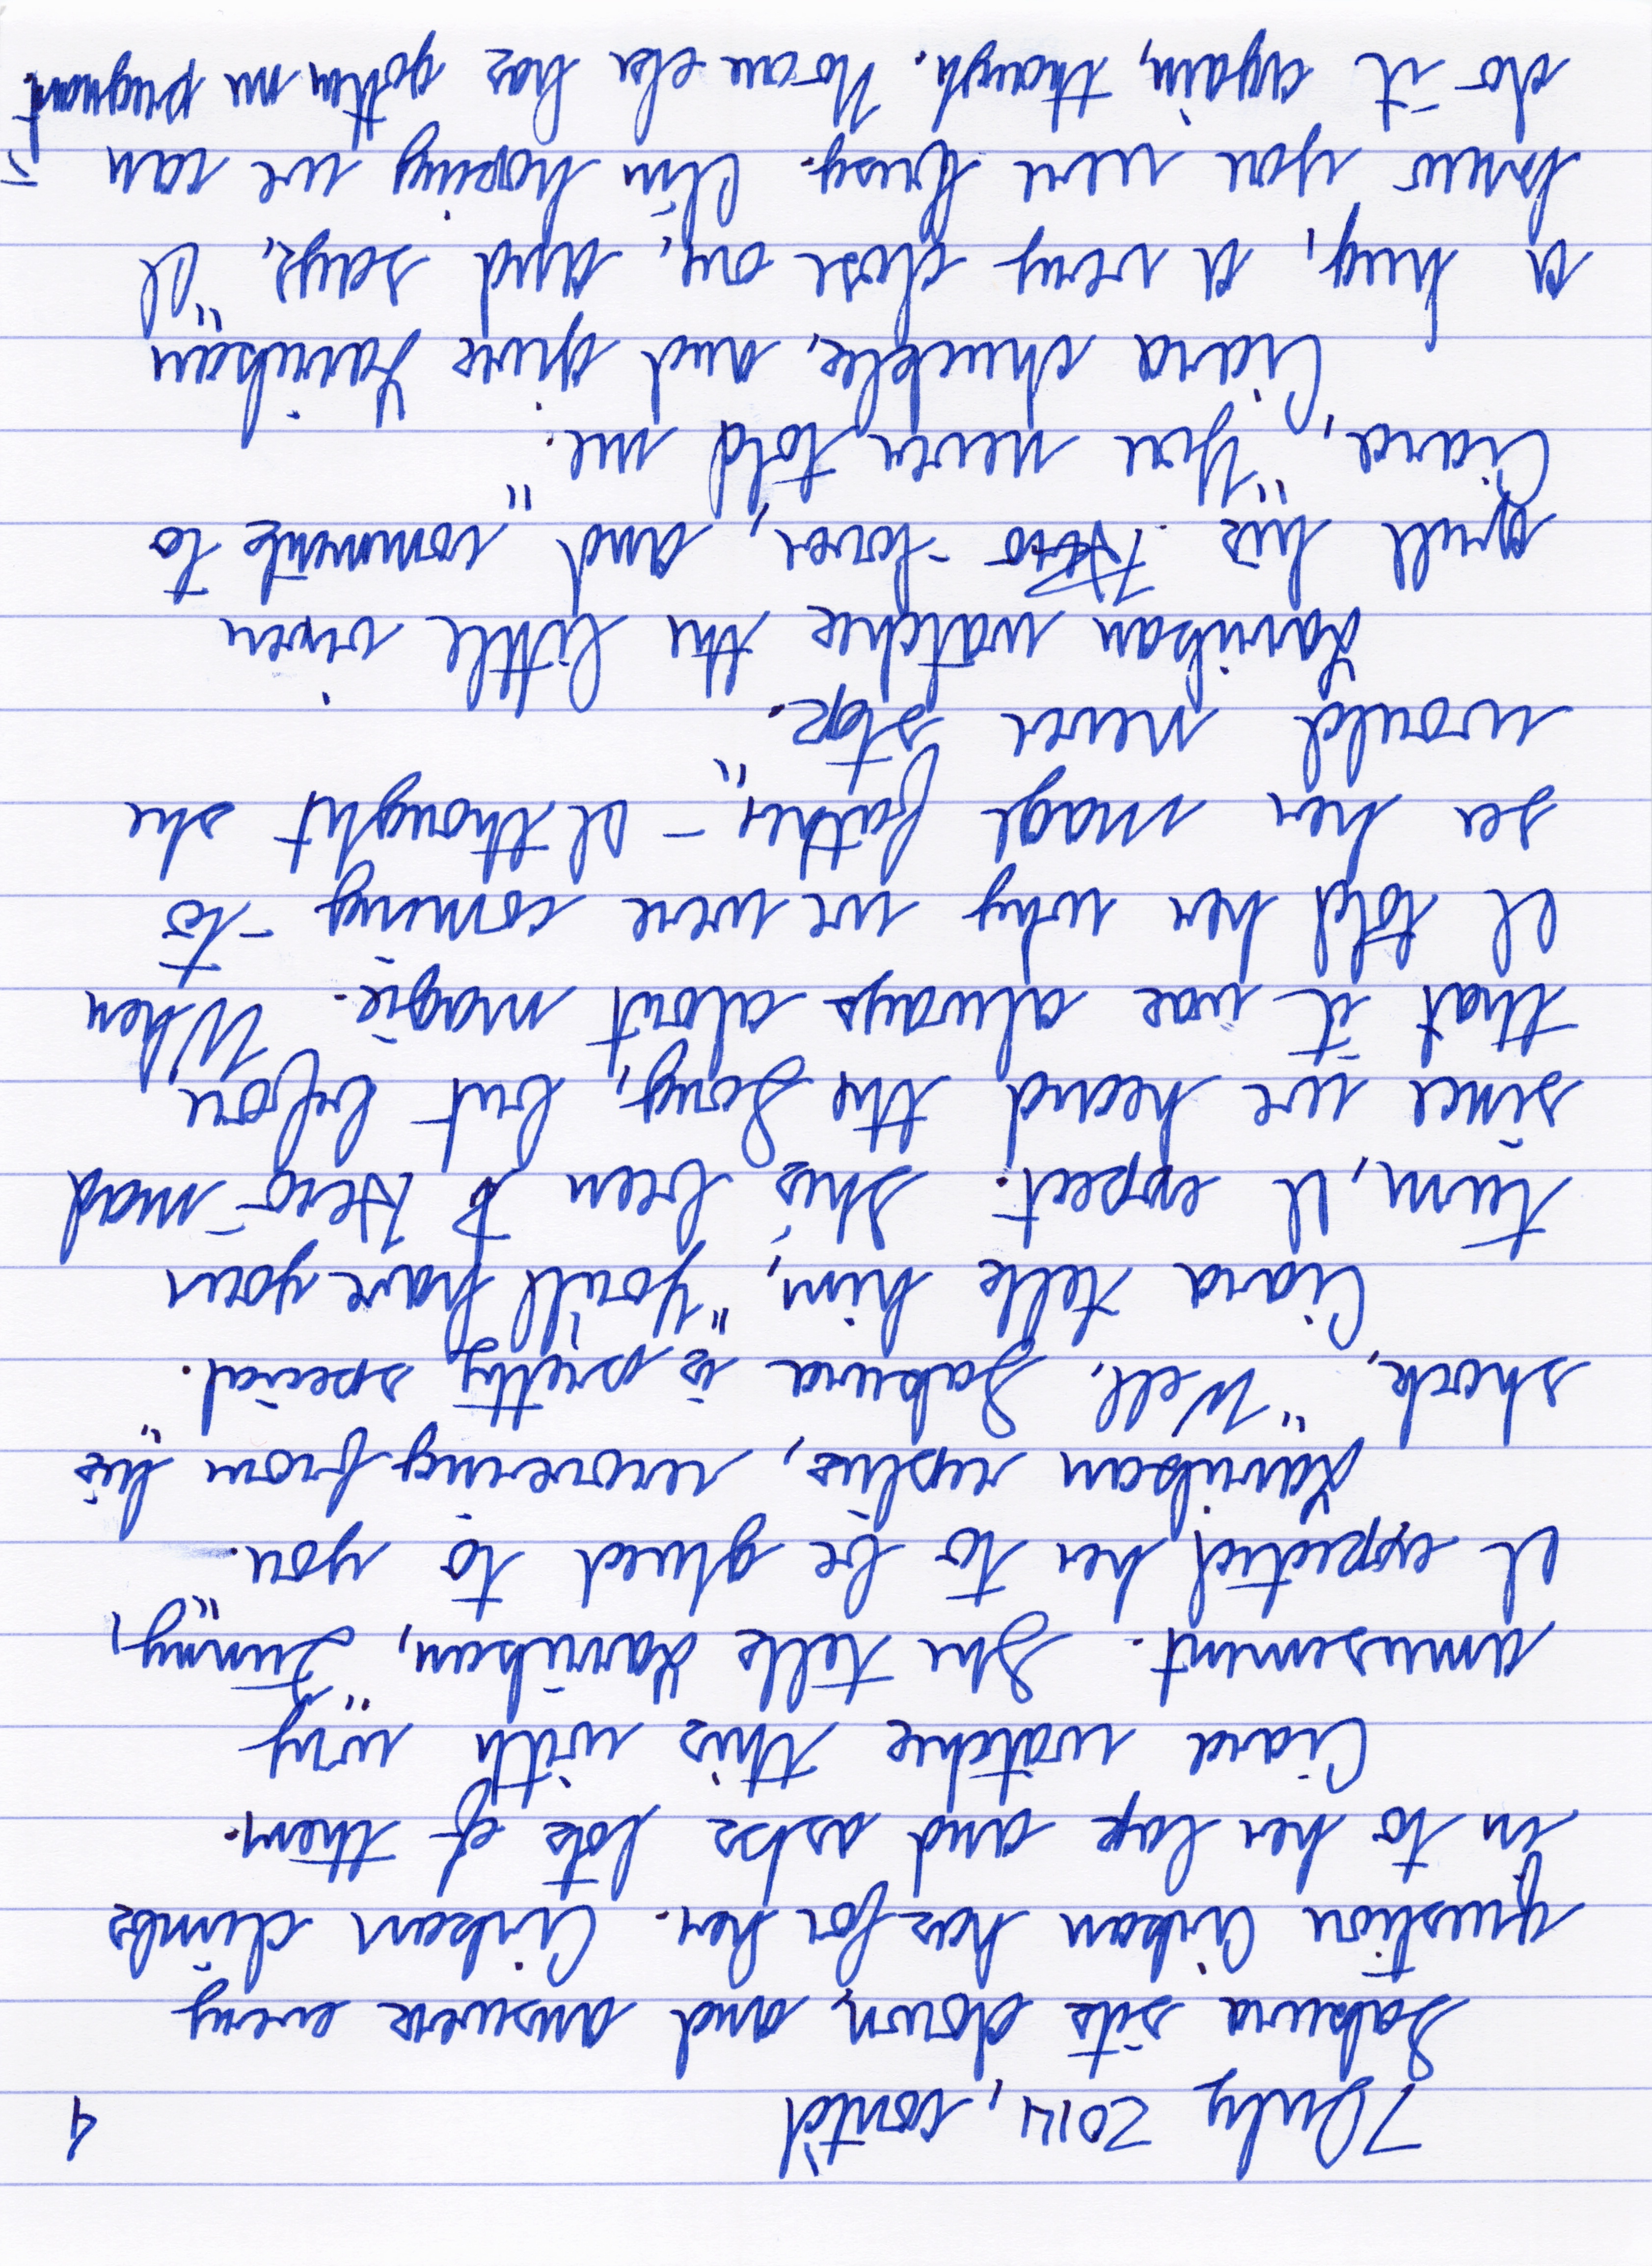 7 July 2014, cont'd 4
Sakura sits down, and answers every
question Arisan has for her. Arisan climbs
in to her lap and asks lots of them.
Ciara watches this with wry
amusement. She tells Larrikan, "Funny,
I expected her to be glued to you."
Larrikan replies, recovering from his
shock, "Well, Sakura is pretty special."
Ciara tells him, "You'll have your
turn, I expect. She's been Hero-mad
since we heard the Song, but before
that it was always about magic. When
I told her why we were coming - to
see her mage father, - I thought she
would never stop."
Larrikan watches the little vixen
grill his Hero-lover, and comments to
Ciara, "You never told me."
Ciara chuckles, and gives Larrikan
a hug, a very close one, and says, "I
knew you were busy. I'm hoping we can
do it again, though. No one else has gotten me pregnant